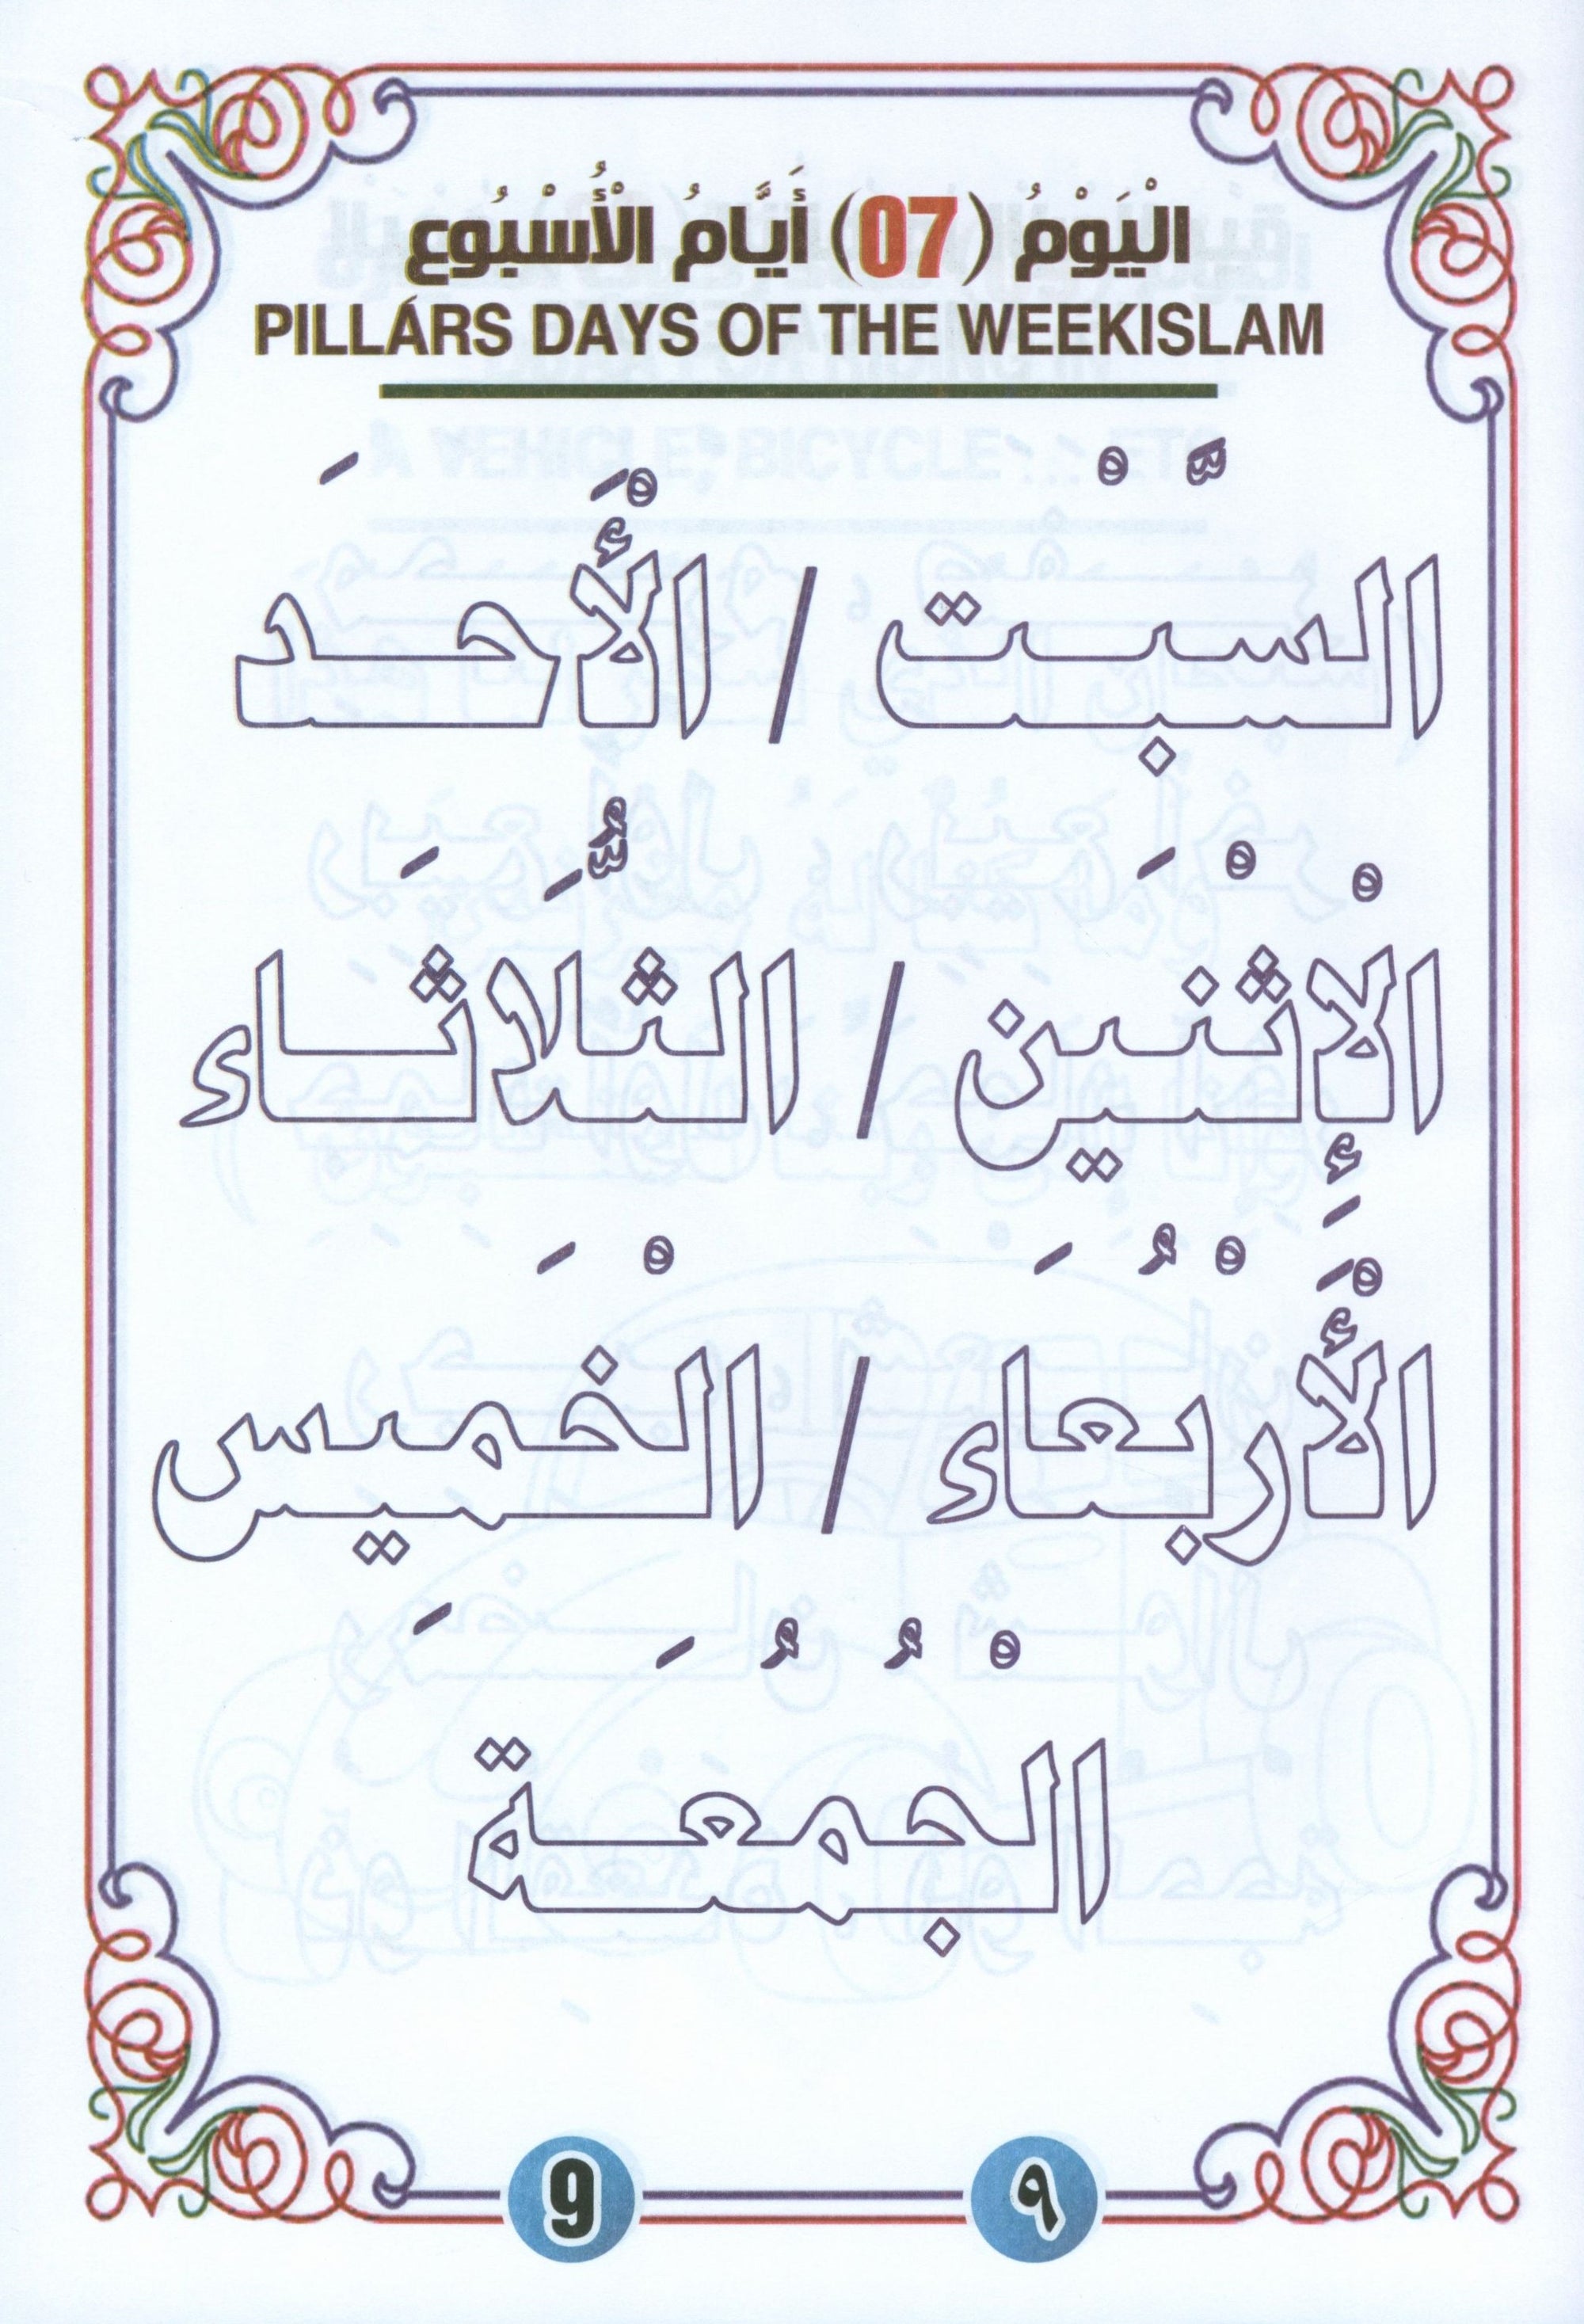 الْيَوْمُ (07) أَيَّامُ الْأُسْبُوع
PILLARS DAYS OF THE WEEKISLAM
السَّبْت / الْأَحَد
الْإِثْنَيْن / الثُّلَاثَاء
الْأَرْبُعَاء / الْخَمِيس
الْجُمُعَة
9 ٩